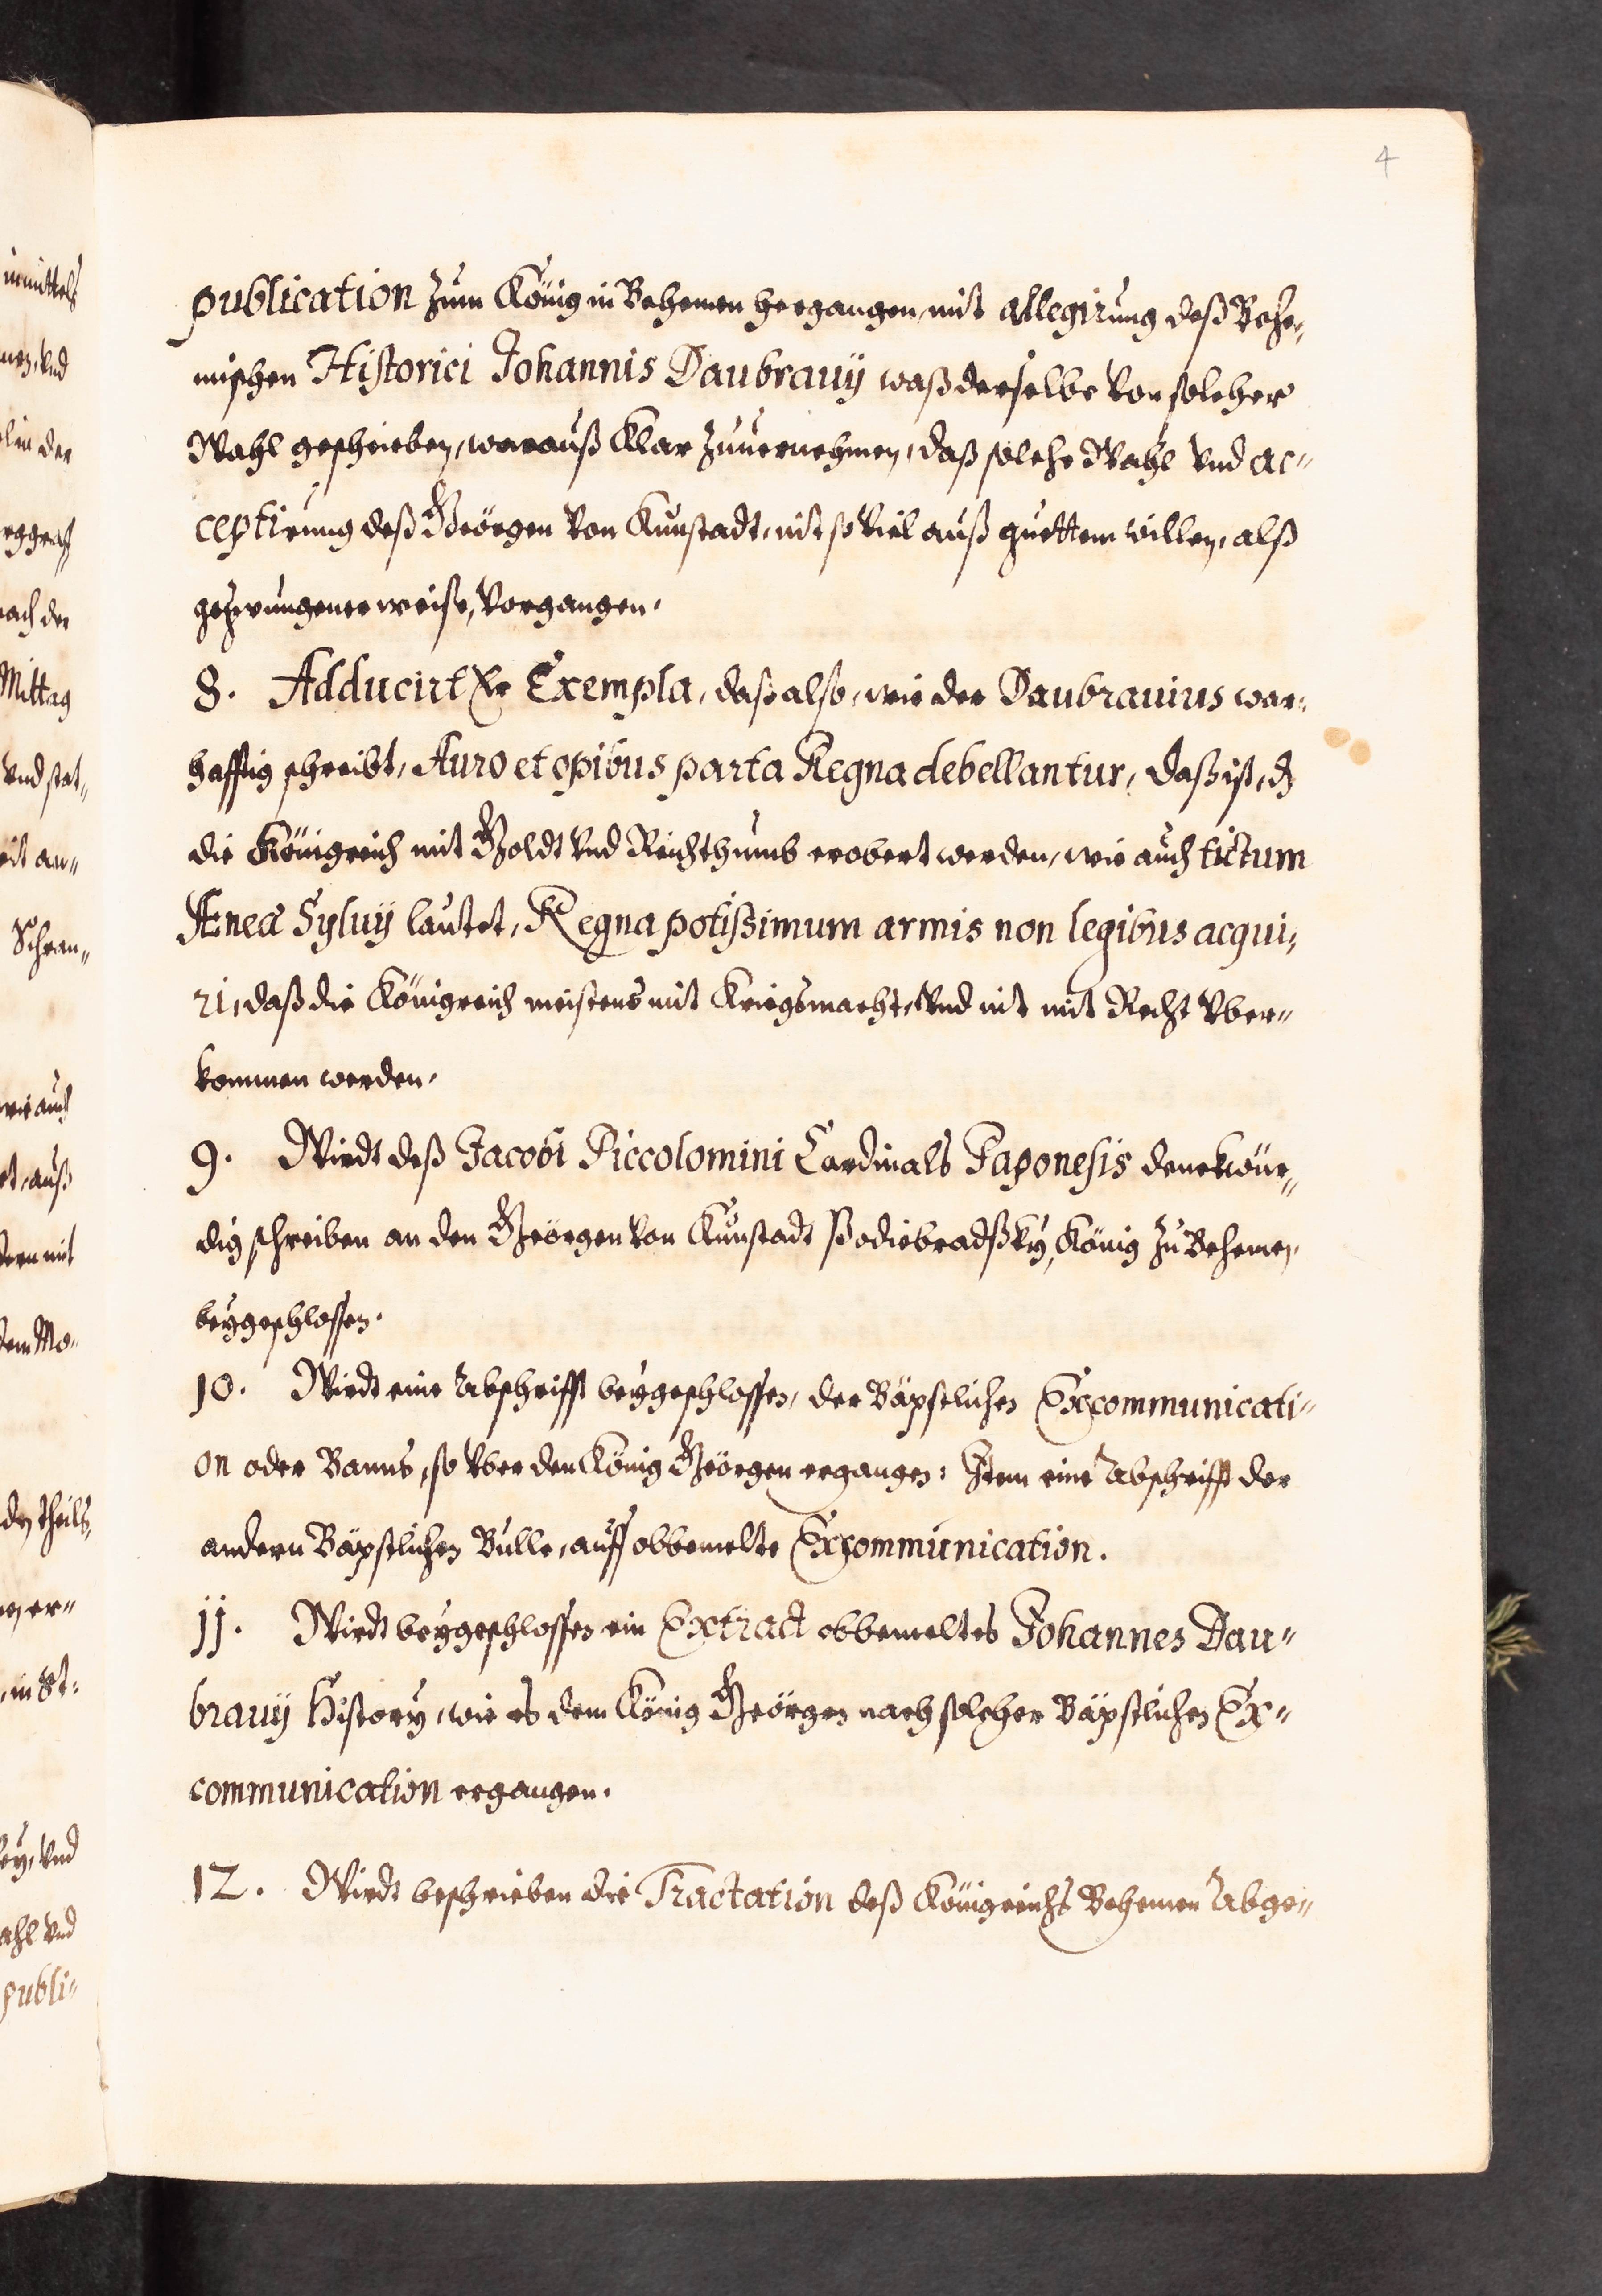 4
publication zum König in Behemen hergangen, mit allegirung deß Behe„
mischen Historici Johannis Daubrauÿ waß derselbe von solcher
Wahl geschrieben, warauß klar zuuernehmen, daß solche Wahl vnd ac„
ceptirung deß Geörgen von Kunstadt, nit so viel auß guettem willen, alß
gezwungener weise, vorgangen.
8. Adducirt Er Exempla, daß also, wie der Daubrauius war„
hafftig schreibt, Auro et opibus parta Regna debellantur, daß ist, dz
die Königreich mit Goldt vnd Reichthumb erobert werden, wie auch dictum
Æneæ Syluÿ lautet, Regna potißimum armis non legibus acqui„
ri, daß die Königreich meistens mit Kriegsmacht, vnd nit mit Recht vber„
kommen werden.
9. Wirdt deß Jacobi Piccolomini Cardinals Paponesis denckwür„
dig schreiben an den Geörgen von Kunstadt Podiebradßkÿ, König zu Behemen,
beygeschlossen.
10. Wirdt eine Abschrifft beygeschlossen, der Bäpstlichen Excommunicati„
on oder Banns, so vber den König Geörgen ergangen: Item eine Abschrifft der
andern Bäpstlichen Bulle, auff obbemelte Excommunication.
11. Wirdt beygeschlossen ein Extract obbemeltes Johannes Dau„
brauÿ History, wie es dem König Geörgen nach solcher Bäpstlichen Ex„
communication ergangen.
12. Wirdt beschrieben die Tractation deß Königreichs Behemen Abge„